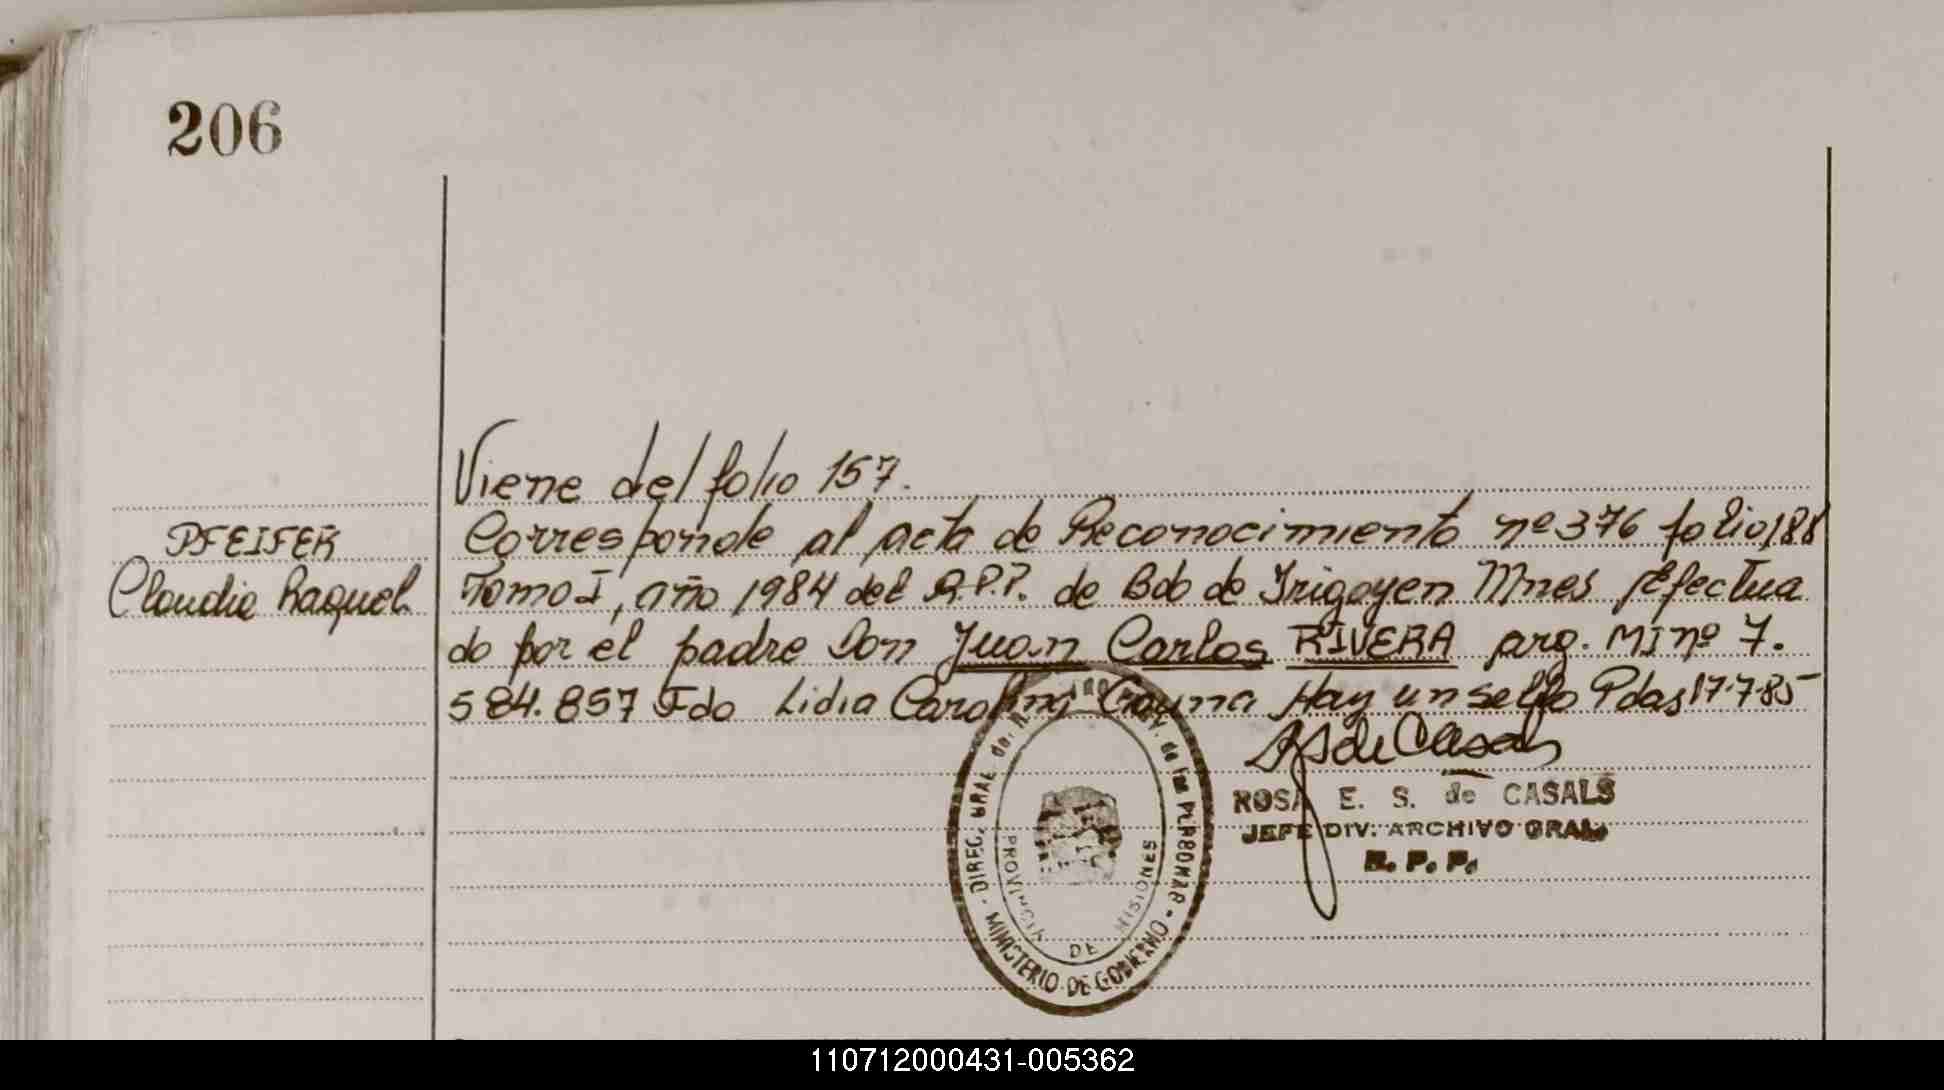 206
Viene del folio 157.
PFEIFER
Claudia Raquel.
Corresponde al acta de Reconocimiento nº 376 folio 188
Tomo I, año 1984 del R.P.P. de Bdo de Irigoyen Mnes efectua
do por el padre Don Juan Carlos RIVERA arg. MI nº 7.
584.857 Fdo Lidia Carolina Hay un sello Pdas 17-7-85
ROSA E. S. de CASALS
JEFE DIV. ARCHIVO GRAL.
R. P. P.
DIREC. GRAL de de las PERSONAS - MINISTERIO DE GOBIERNO -
PROVINCIA DE MISIONES
110712000431-005362